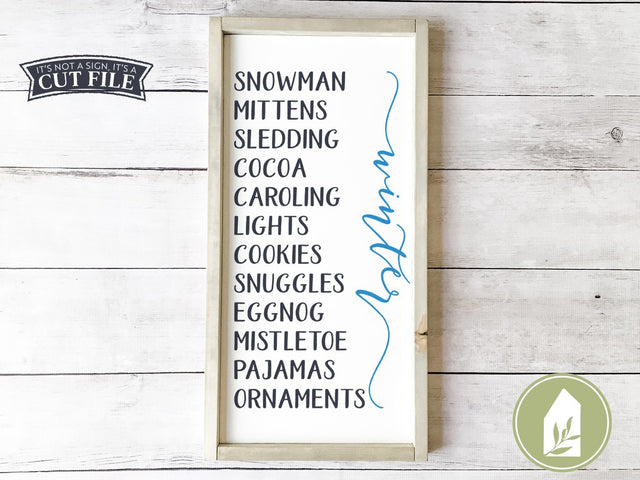 IT'S NOT A SIGN, IT'S A
CUT FILE
SNOWMAN
MITTENS
SLEDDING
COCOA
CAROLING
LIGHTS
COOKIES
SNUGGLES
EGGNOG
MISTLETOE
PAJAMAS
ORNAMENTS
winter